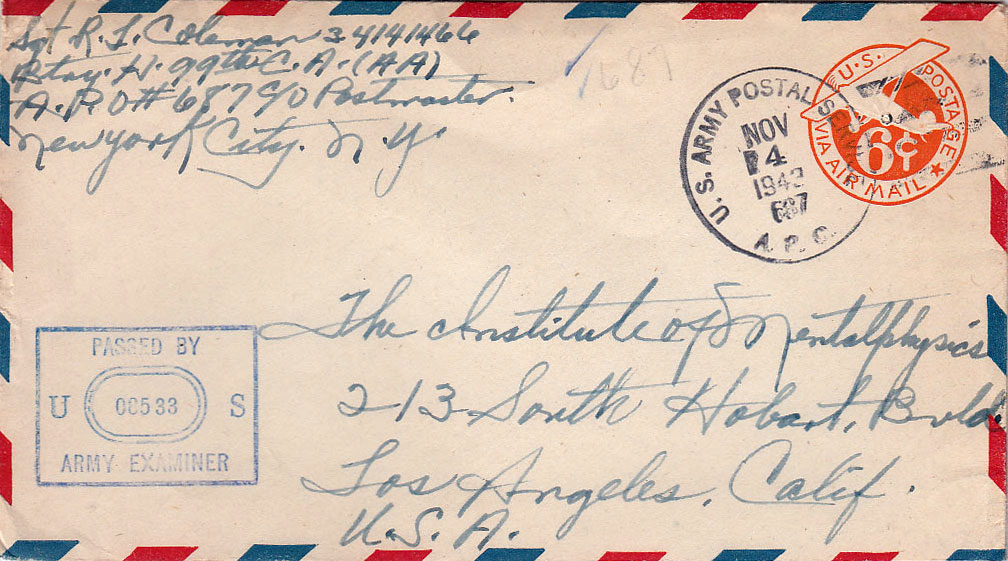 Sgt R. L. Coleman 34141466
Btry. H. 99th C.A. (AA)
A.P.O # 687 C/O Postmaster.
New York City. N.Y
1687
U.S. ARMY POSTAL SERVICE
NOV
4
1942
687
A.P.O.
U.S. POSTAGE
6¢
VIA AIR MAIL
PASSED BY
U 00533 S
ARMY EXAMINER
The Institute of Mentalphysics
213 South Hobart, Bvld.
Los Angeles, Calif.
U.S.A.